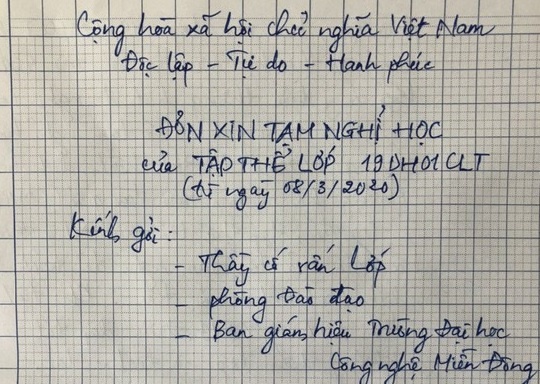 Cộng hoà xã hội chủ nghĩa Việt Nam
Độc lập - Tự do - Hạnh phúc
ĐƠN XIN TẠM NGHỈ HỌC
của TẬP THỂ LỚP 19DH01CLT
(từ ngày 08/3/2020)
Kính gởi:
- Thầy cố vấn Lớp
- phòng Đào tạo
- Ban giám hiệu Trường Đại học
Công nghệ Miền Đông